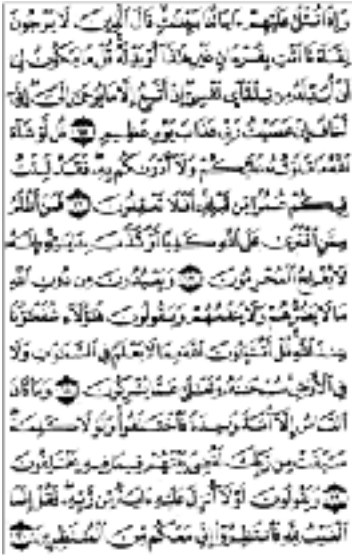 وَإِذَا تُتْلَىٰ عَلَيْهِمْ ءَايَاتُنَا بَيِّنَاتٍ قَالَ ٱلَّذِينَ لَا يَرْجُونَ
لِقَآءَنَا ٱئْتِ بِقُرْءَانٍ غَيْرِ هَٰذَآ أَوْ بَدِّلْهُ قُلْ مَا يَكُونُ لِىٓ
أَنْ أُبَدِّلَهُۥ مِن تِلْقَآئِ نَفْسِىٓ إِنْ أَتَّبِعُ إِلَّا مَا يُوحَىٰٓ إِلَىَّ إِنِّىٓ
أَخَافُ إِنْ عَصَيْتُ رَبِّى عَذَابَ يَوْمٍ عَظِيمٍ ۝١٥ قُل لَّوْ شَآءَ
ٱللَّهُ مَا تَلَوْتُهُۥ عَلَيْكُمْ وَلَآ أَدْرَىٰكُم بِهِۦ فَقَدْ لَبِثْتُ
فِيكُمْ عُمُرًا مِّن قَبْلِهِۦٓ أَفَلَا تَعْقِلُونَ ۝١٦ فَمَنْ أَظْلَمُ
مِمَّنِ ٱفْتَرَىٰ عَلَى ٱللَّهِ كَذِبًا أَوْ كَذَّبَ بِـَٔايَٰتِهِۦٓ إِنَّهُۥ
لَا يُفْلِحُ ٱلْمُجْرِمُونَ ۝١٧ وَيَعْبُدُونَ مِن دُونِ ٱللَّهِ
مَا لَا يَضُرُّهُمْ وَلَا يَنفَعُهُمْ وَيَقُولُونَ هَٰٓؤُلَآءِ شُفَعَٰٓؤُنَا
عِندَ ٱللَّهِ قُلْ أَتُنَبِّـُٔونَ ٱللَّهَ بِمَا لَا يَعْلَمُ فِى ٱلسَّمَٰوَٰتِ وَلَا
فِى ٱلْأَرْضِ سُبْحَٰنَهُۥ وَتَعَٰلَىٰ عَمَّا يُشْرِكُونَ ۝١٨ وَمَا كَانَ
ٱلنَّاسُ إِلَّآ أُمَّةً وَٰحِدَةً فَٱخْتَلَفُوا۟ وَلَوْلَا كَلِمَةٌ
سَبَقَتْ مِن رَّبِّكَ لَقُضِىَ بَيْنَهُمْ فِيمَا فِيهِ يَخْتَلِفُونَ
۝١٩ وَيَقُولُونَ لَوْلَآ أُنزِلَ عَلَيْهِ ءَايَةٌ مِّن رَّبِّهِۦ فَقُلْ إِنَّمَا
ٱلْغَيْبُ لِلَّهِ فَٱنتَظِرُوٓا۟ إِنِّى مَعَكُم مِّنَ ٱلْمُنتَظِرِينَ ۝٢٠